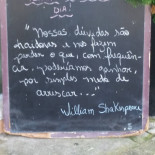 DIA!
"Nossas dúvidas são
traidoras e nos fazem
perder o que, com frequên-
cia, poderíamos ganhar,
por simples medo de
arriscar..."
William Shakespeare